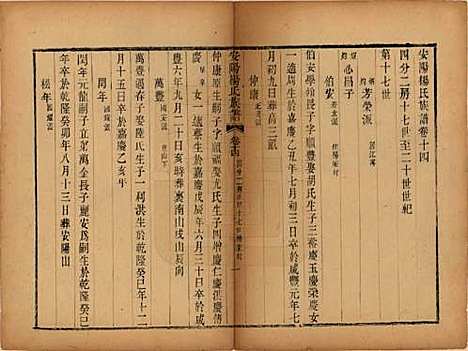 安陽楊氏族譜卷十四
四分二房十七世至二十世世紀
第十七世
芳榮派
心昌子
伯安
伯安學翰長子字順豐娶胡氏生子三裕慶玉慶榮慶女
一適周生於嘉慶乙丑年七月初三日卒於咸豐元年七
月初九日葬高三瓢
仲康
安陽楊氏族譜
卷十四
仲康原名元福字順福娶尤氏生子四增慶仁慶洪慶
女一適蔡生於嘉慶戊辰年六月三十日卒於咸
豐六年九月二十日亥時葬裏南山戌山辰向
萬豐
萬豐春子娶陸氏生子一利洪生於乾隆癸巳年十二
月十五日亥時卒於嘉慶
閏年
閏年元龍嗣子立弟萬金長子麗安爲嗣生於乾隆癸巳年
卒於乾隆癸卯年八月十三日葬安陽山
松年